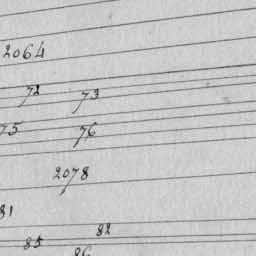 2064
72 73
75 76
2078
81
82
85 86